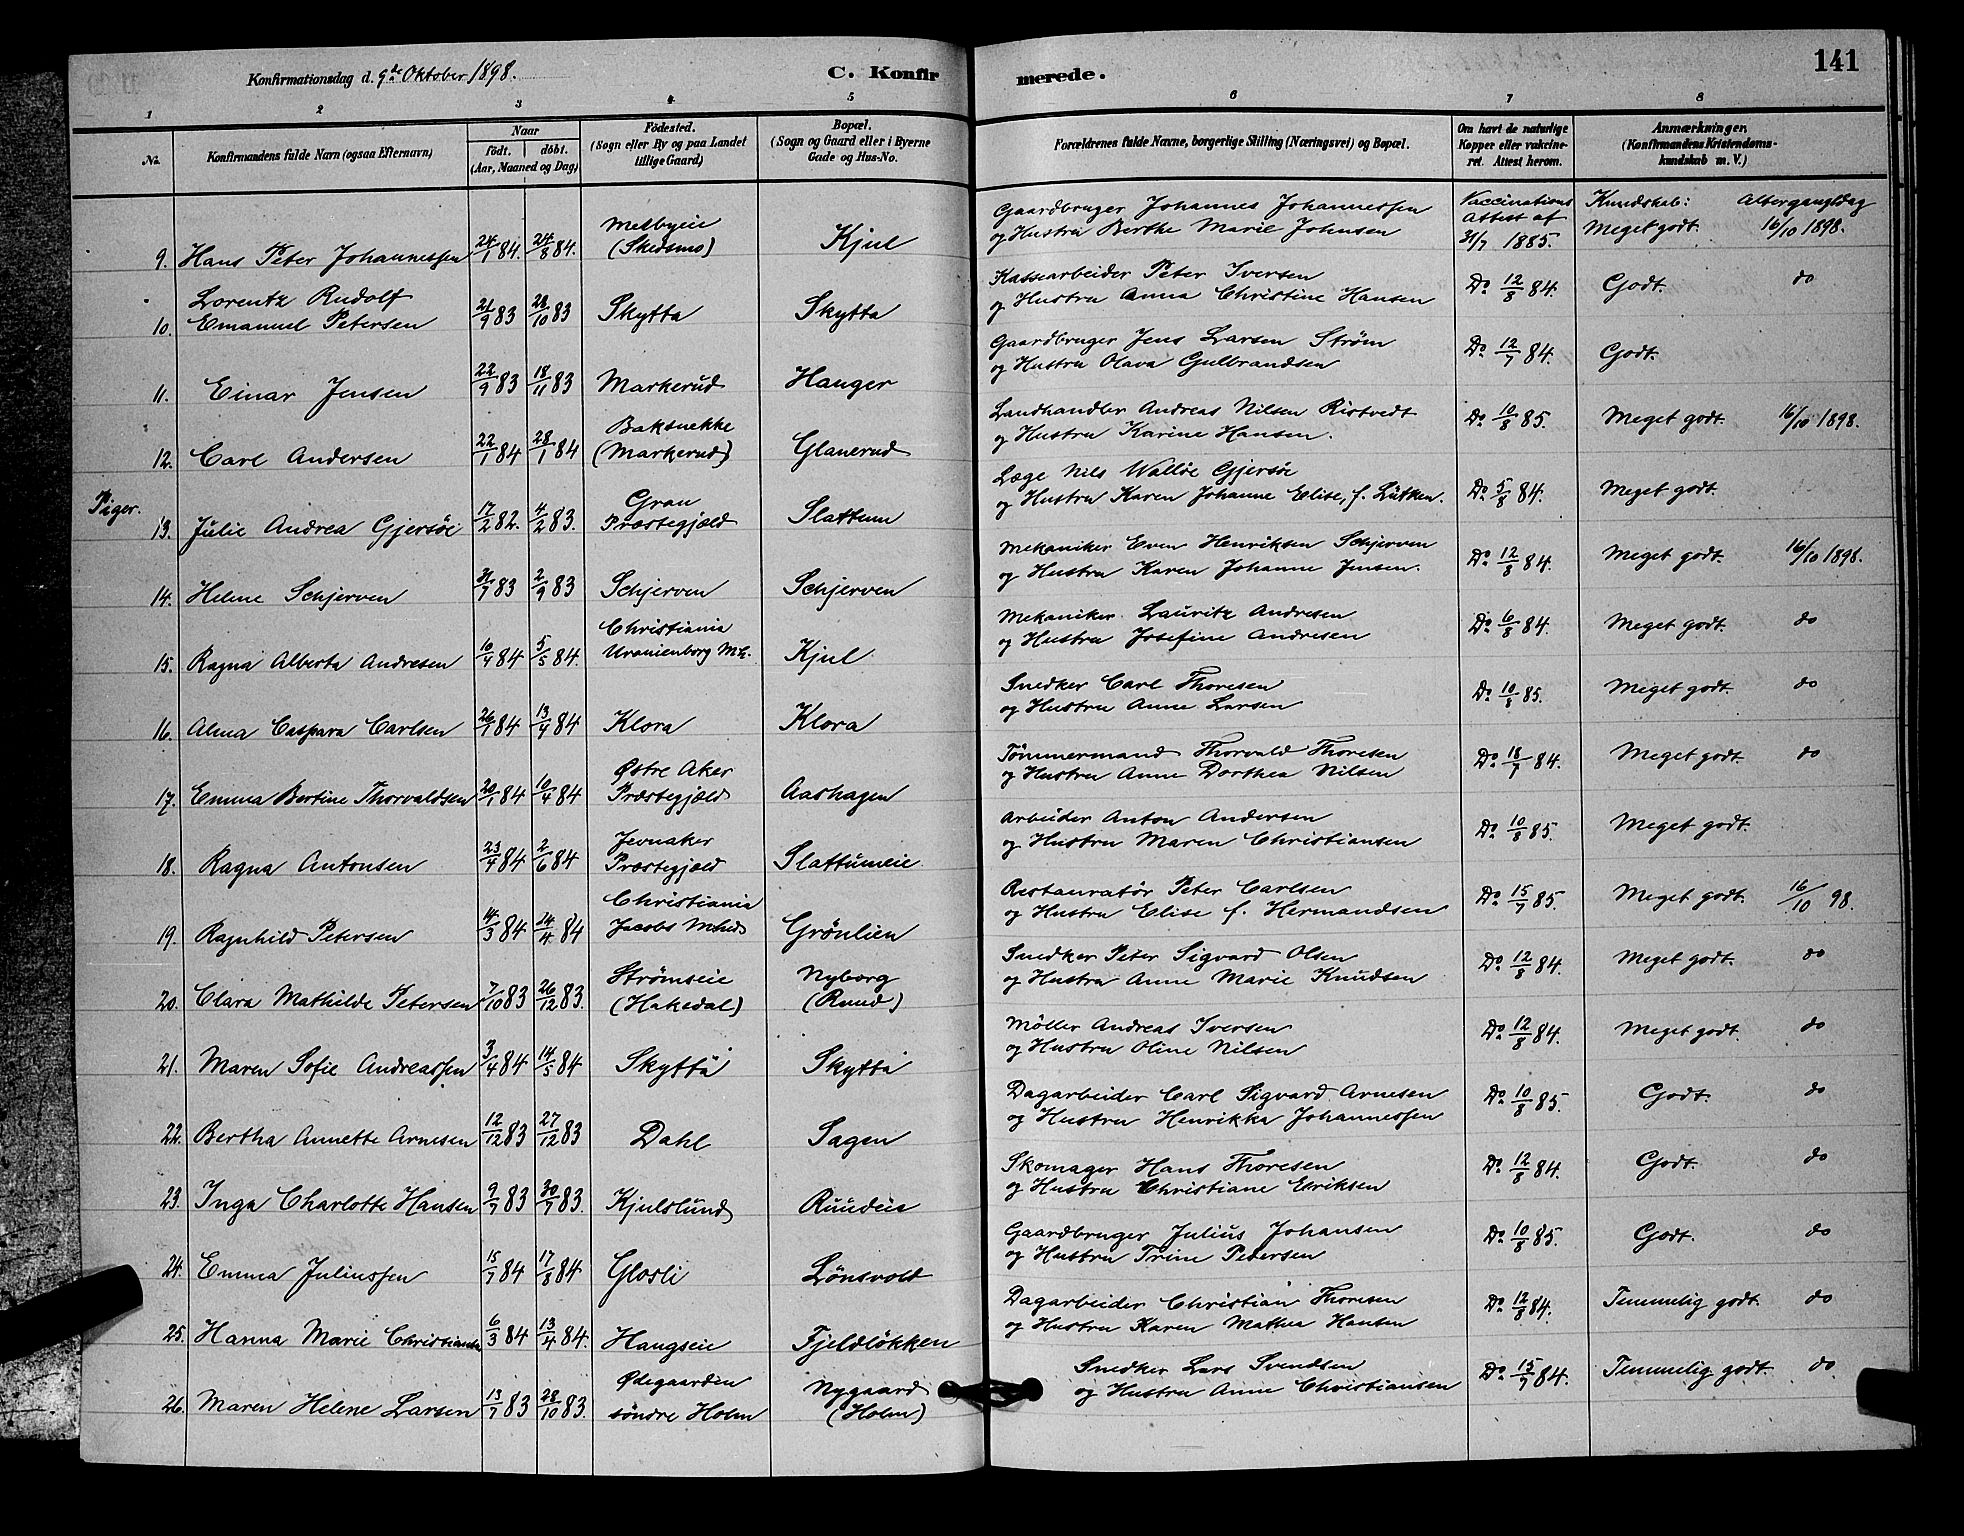 Konfirmationsdag d. 9de Oktober 1898.
C. Konfirmerede.
141
1 2 3 4 5 6 7 8
No.
Konfirmandens fulde Navn (ogsaa Efternavn)
Naar
født. døbt.
(Aar, Maaned og Dag)
Fødested.
(Sogn eller By og paa Landet
tillige Gaard)
Bopæl.
(Sogn og Gaard eller i Byerne
Gade og Hus-No.
Forældrenes fulde Navne, borgerlige Stilling (Næringsvei) og Bopæl.
Om havt de naturlige
Kopper eller vakcine-
ret. Attest herom.
Anmærkninger.
(Konfirmandens Kristendoms-
kundskab m. V.)
9. Hans Peter Johannessen 24/1 84. 24/8 84. Melbyeie
(Skedsmo) Kjul
Gaardbruger Johannes Johannessen
og Hustru Berthe Marie Johnsen
Vaccinations
attest af
31/7 1885.
Kundskab:
Meget godt.
Altergangsdag
16/10 1898.
10. Lorentz Rudolf
Emanuel Petersen 21/9 83 28/10 83 Skytta Skytta
Kassearbeider Peter Iversen
og Hustru Anna Christine Hansen
Do 12/8 84. Godt. do
11. Einar Jensen 22/9 83 18/11 83 Markerud Hauger
Gaardbruger Jens Larsen Strøm
og Hustru Olava Gulbrandsen
Do 12/7 84. Godt.
12. Carl Andersen 22/1 84 28/1 84 Baksnekke
(Markerud) Glanerud
Landhandler Andreas Nilsen Ristvedt
og Hustru Karine Hansen.
Do 10/8 85. Meget godt. 16/10 1898.
Piger.
13. Julie Andrea Gjersöe 17/2 82. 4/2 83. Gran
Præstegjeld Slattum
Læge Nils Walløe Gjersöe
og Hustru Karen Johanne Elise, f. Lütken.
Do 5/8 84. Meget godt.
14. Helene Schjerven 31/7 83 2/9 83 Schjerven Schjerven
Mekaniker Even Henriksen Schjerven
og Hustru Karen Johanne Jensen.
Do 12/8 84. Meget godt. 16/10 1898.
15. Ragna Alberta Andresen 16/4 84 5/5 84. Christiania
Uranienborg Mh. Kjul
Mekaniker Lauritz Andresen
og Hustru Josefine Andresen
Do 6/8 84. Meget godt. do
16. Alma Caspara Carlsen 26/1 84 13/4 84 Klora Klora
Snedker Carl Thoresen
og Hustru Anne Larsen
Do 10/8 85. Meget godt. do
17. Emma Bertine Thorvaldsen 20/1 84 6/4 84 Østre Aker
Præstegjeld Aashagen
Tömmermand Thorvald Thoresen
og Hustru Anne Dorthea Nilsen
Do 18/7 84. Meget godt. do
18. Ragna Antonsen 23/4 84 2/6 84 Jevnaker
Præstegjeld Slattumeie
Arbeider Anton Andersen
og Hustru Maren Christiansen
Do 10/8 85. Meget godt.
19. Ragnhild Petersen 14/3 84 14/4 84 Christiania
Jacobs Mhed Grönlien
Restauratør Peter Carlsen
og Hustru Elise f. Hermandsen
Do 15/7 85. Meget godt. 16/10 98.
20. Clara Mathilde Petersen 7/10 83 26/12 83. Strømseie
(Hakedal) Nyborg
(Ruud)
Snedker Peter Sigvard Olsen
og Hustru Anne Marie Knudsen
Do 12/8 84. Meget godt. do
21. Maren Sofie Andreassen 3/4 84 14/5 84 Skytta Skytta
Möller Andreas Iversen
og Hustru Oline Nilsen
Do 12/8 84. Meget godt. do
22. Bertha Annette Arnesen 12/12 83 27/12 83 Dahl Sagen
Dagarbeider Carl Sigvard Arnesen
og Hustru Henrikka Johannessen
Do 10/8 85. Godt. do
23. Inga Charlotte Hansen 9/7 83 30/7 83. Kjulslund Ruudeie
Skomager Hans Thoresen
og Hustru Christiane Eriksen
Do 12/8 84. Godt. do
24. Emma Juliussen 15/7 84 17/8 84 Glosli Lönsvold
Gaardbruger Julius Johansen
og Hustru Trine Petersen
Do 10/8 85. Godt. do
25. Hanna Marie Christiansen 6/3 84 13/4 84. Haugseie Fjeldlökken
Dagarbeider Christian Thoresen
og Hustru Karen Mathea Hansen
Do 12/8 84. Temmelig godt. do
26. Maren Helene Larsen 13/7 83 28/10 83. Ødegaarden
söndre Holm Nygaard
(Holm)
Snedker Lars Svendsen
og Hustru Anne Christiansen
Do 15/7 84. Temmelig godt. do